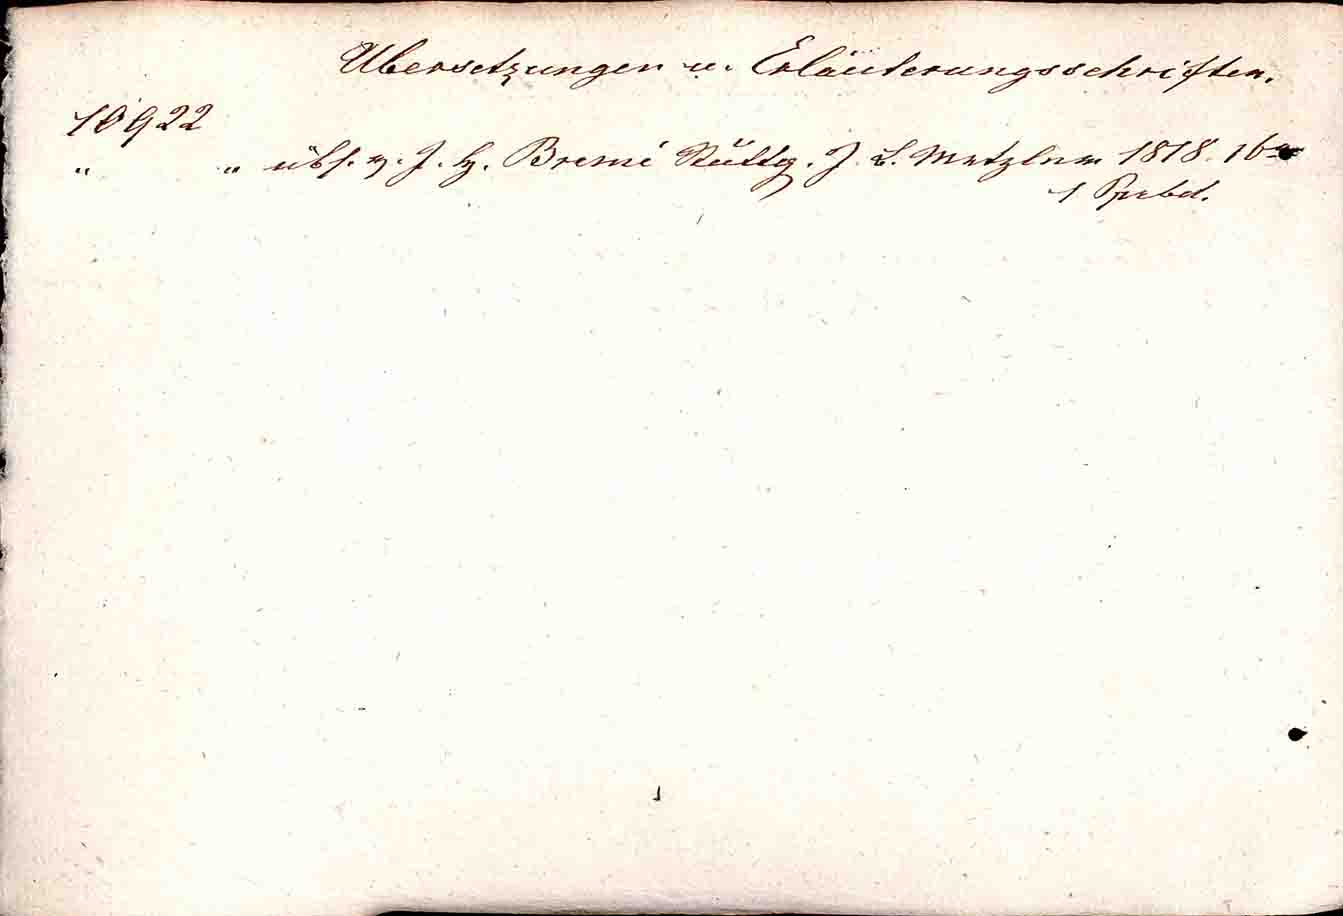 Übersetzungen u. Erläuterungsschriften.
10922
„ „ übs. v. J. H. Bremi Stuttg. J. B. Metzler 1818. 16°
1 Ppbd.